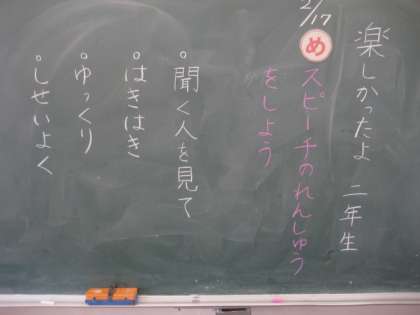 楽しかったよ 二年生
2/17
め スピーチのれんしゅう
をしよう
。聞く人を見て
。はきはき
。ゆっくり
。しせいよく